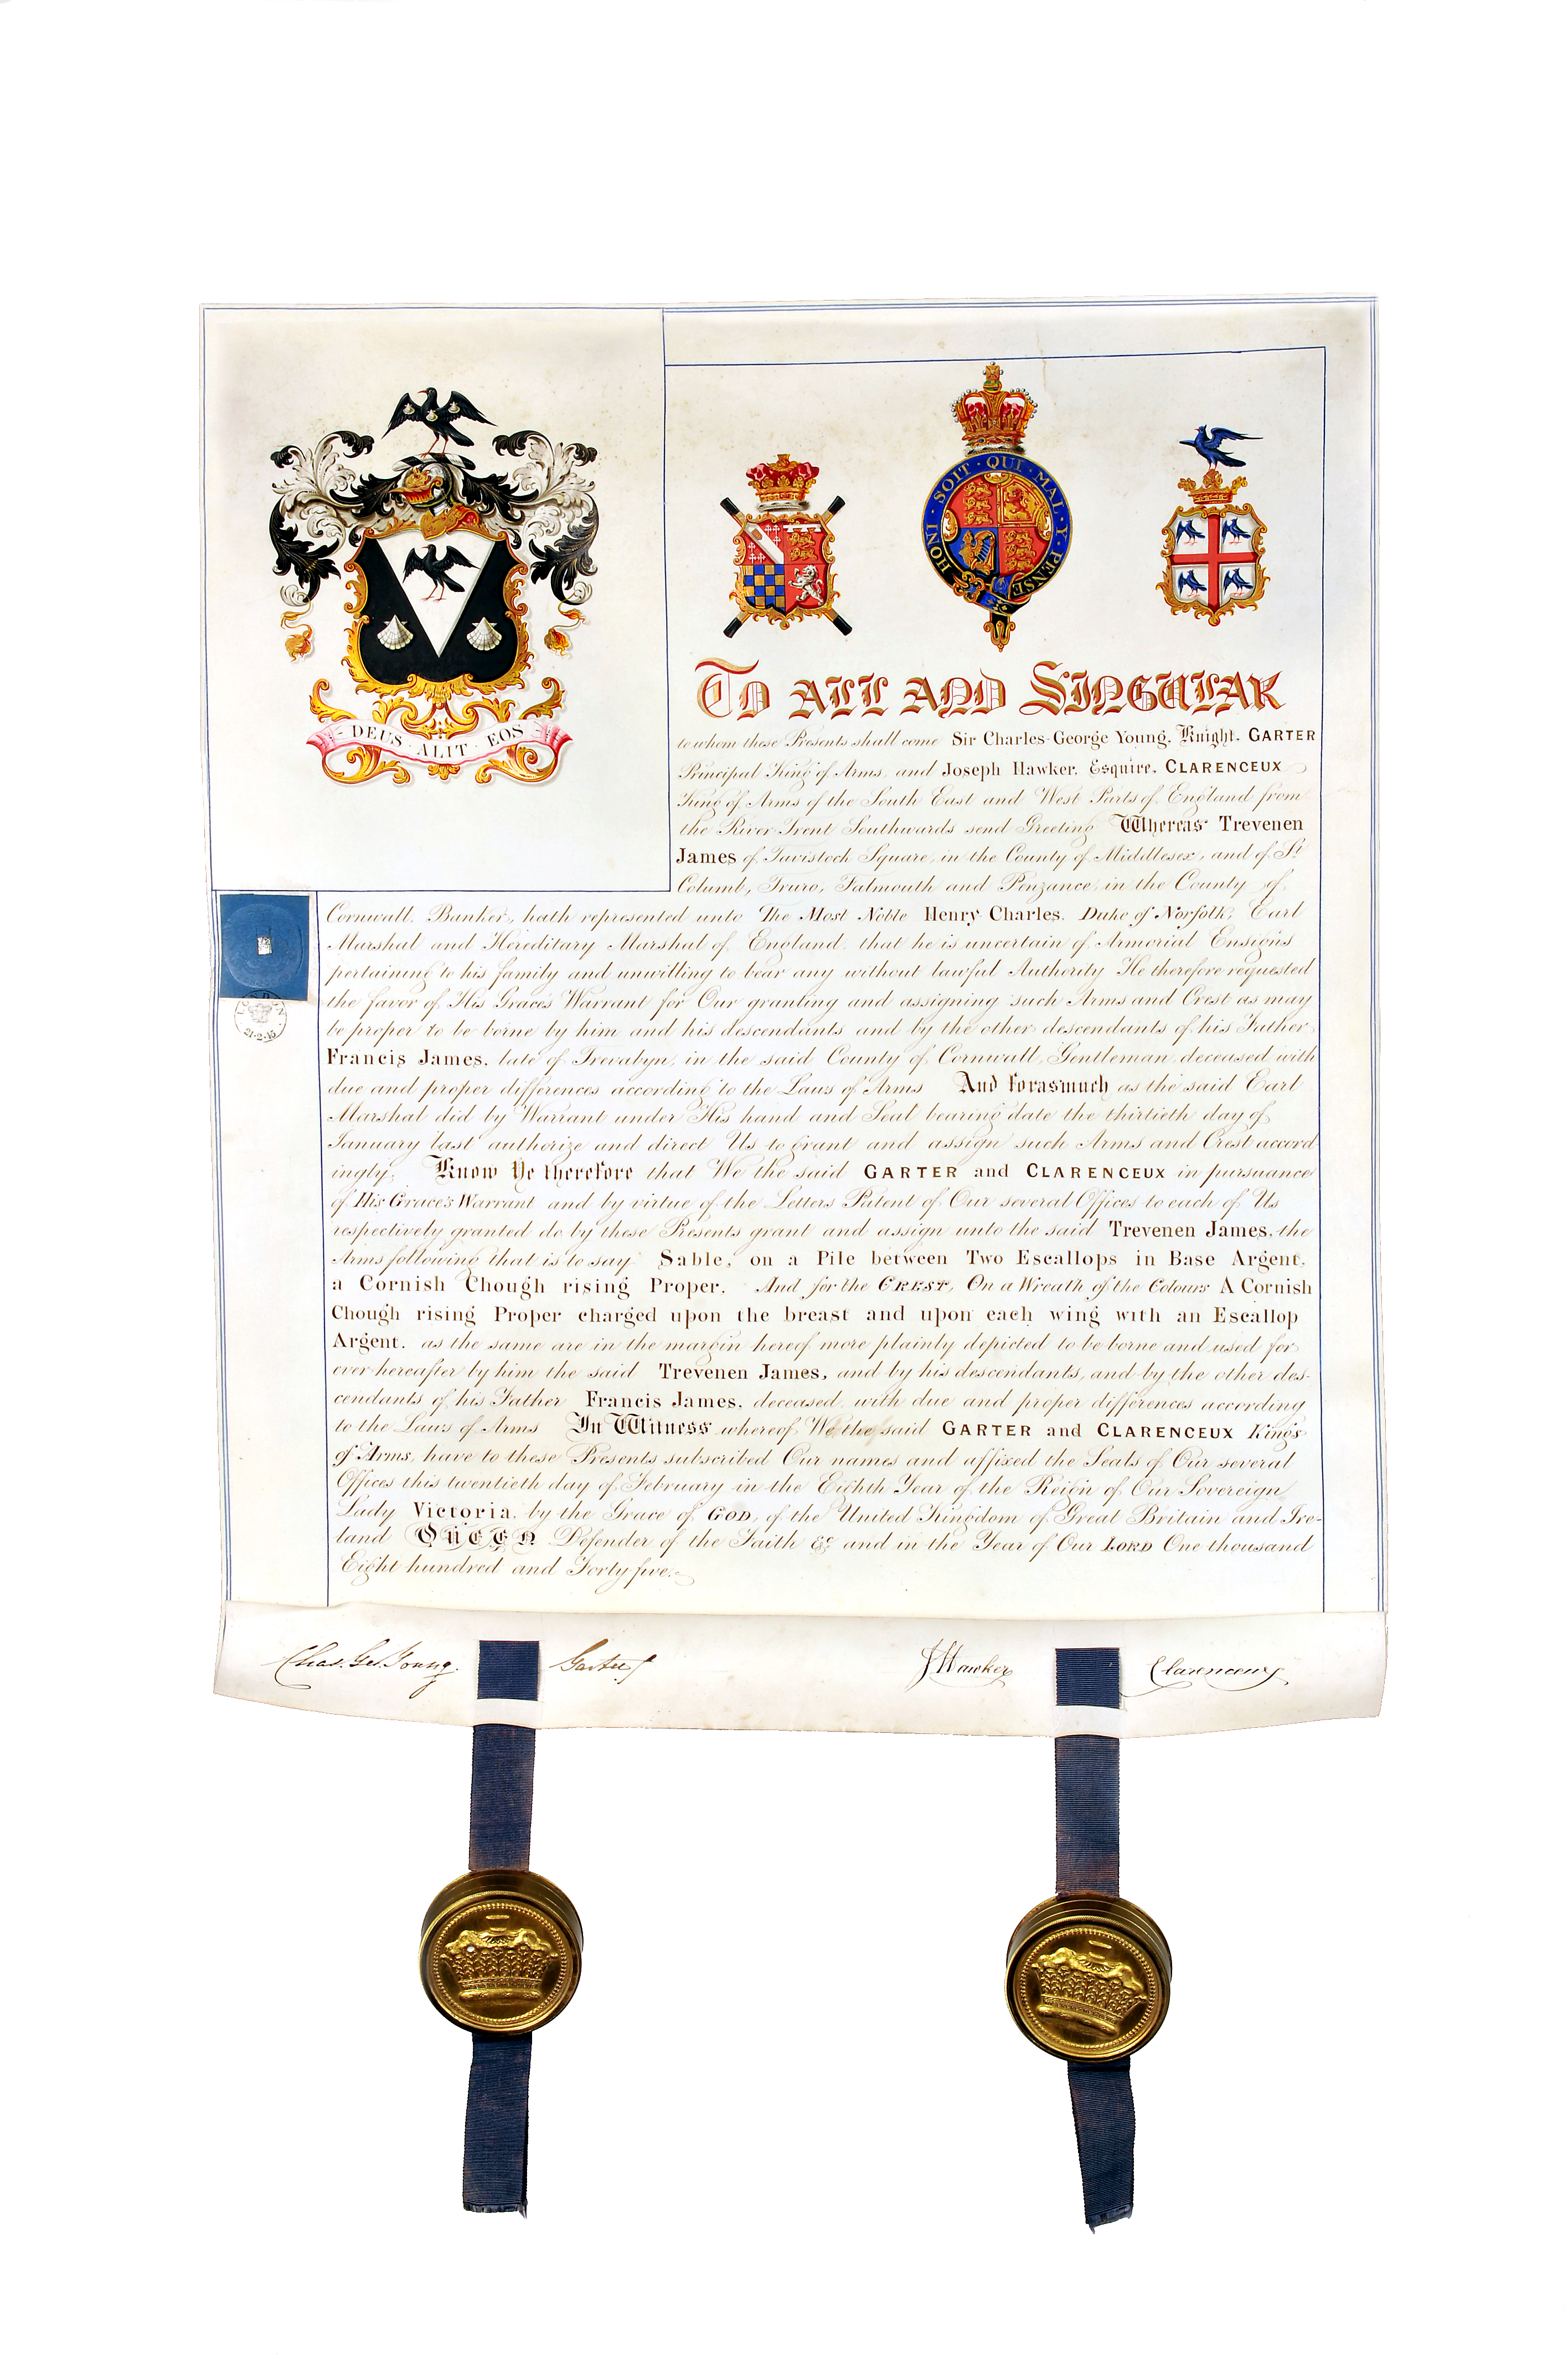 DEUS · ALIT · EOS
HONI · SOIT · QUI · MAL · Y · PENSE
To ALL AND SINGULAR
to whom these Presents shall come Sir Charles George Young, Knight, GARTER
Principal King of Arms, and Joseph Hawker, Esquire, CLARENCEUX
King of Arms of the South East and West Parts of England from
the River Trent Southwards send Greeting Whereas Trevenen
James of Tavistock Square, in the County of Middlesex, and of St
Columb, Truro, Falmouth and Penzance, in the County of
Cornwall, Banker, hath represented unto The Most Noble Henry Charles, Duke of Norfolk, Earl
Marshal and Hereditary Marshal of England, that he is uncertain of Armorial Ensigns
pertaining to his family and unwilling to bear any without lawful Authority He therefore requested
the favor of His Grace's Warrant for Our granting and assigning such Arms and Crest as may
be proper to be borne by him and his descendants and by the other descendants of his Father
Francis James, late of in the said County of Cornwall, Gentleman, deceased with
due and proper differences according to the Laws of Arms And forasmuch as the said Earl
Marshal did by Warrant under His hand and Seal bearing date the thirtieth day of
January last authorize and direct Us to grant and assign such Arms and Crest accord
ingly; Know Ye therefore that We the said GARTER and CLARENCEUX in pursuance
of His Grace's Warrant and by virtue of the Letters Patent of Our several Offices to each of Us
respectively granted do by these Presents grant and assign unto the said Trevenen James, the
Arms following that is to say Sable, on a Pile between Two Escallops in Base Argent,
a Cornish Chough rising Proper. And for the CREST, On a Wreath of the Colours A Cornish
Chough rising Proper charged upon the breast and upon each wing with an Escallop
Argent, as the same are in the margin hereof more plainly depicted to be borne and used for
ever hereafter by him the said Trevenen James, and by his descendants, and by the other des-
cendants of his Father Francis James, deceased, with due and proper differences according
to the Laws of Arms In Witness whereof We the said GARTER and CLARENCEUX Kings
of Arms, have to these Presents subscribed Our names and affixed the Seals of Our several
Offices this twentieth day of February in the Eighth Year of the Reign of Our Sovereign
Lady Victoria, by the Grace of GOD, of the United Kingdom of Great Britain and Ire-
land QUEEN Defender of the Faith &c and in the Year of Our LORD One thousand
Eight hundred and Forty five.
21.2.45
Chas. Geo. Young. Garter
J Hawker Clarenceux